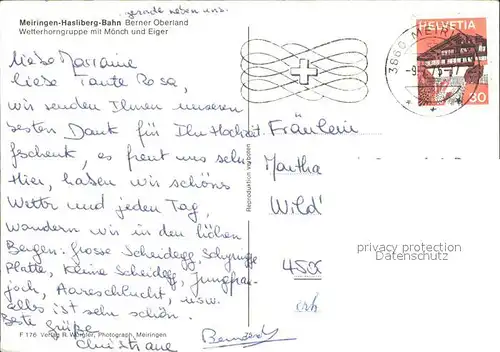 gerade neben uns.
Meiringen-Hasliberg-Bahn Berner Oberland
Wetterhorngruppe mit Mönch und Eiger
Liebe Marianne
liebe Tante Rosa,
wir senden Ihnen unseren
besten Dank für Ihr Hochzeit
geschenk, es freut uns sehr
Hier, haben wir schöns
Wetter und jeden Tag,
wandern wir in den höhen
Bergen: Grosse Scheidegg, Schynige
platte, Kleine Scheidegg, Jungfrau-
joch, Aareschlucht, usw.
alles ist sehr schön.
Beste Grüße
Christiane
Bernard
F 176 Verlag R. Würgler, Photograph, Meiringen
Reproduktion verboten
3860 MEIRINGEN
HELVETIA
30
Fräulein
Martha
Wild
4500
privacy protection
Datenschutz